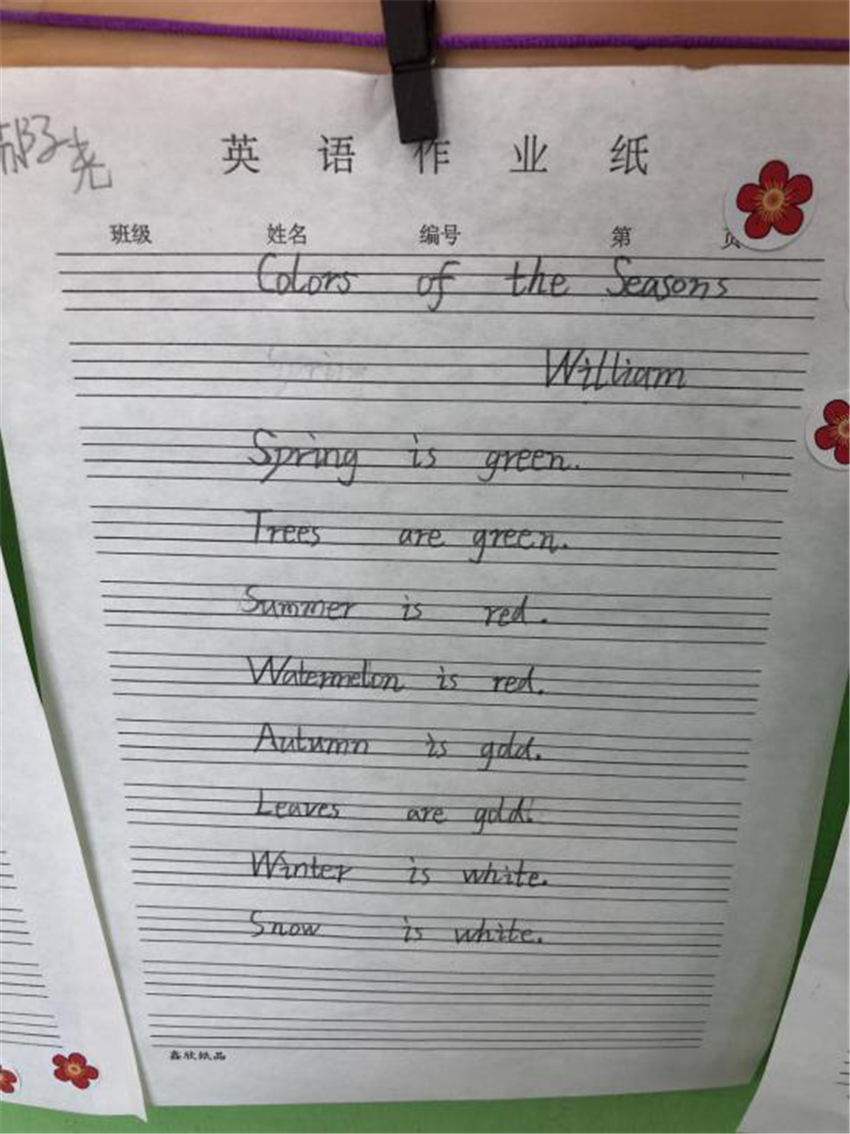 英语作业纸
班级 姓名 编号 第 页
Colors of the Seasons
William
Spring is green.
Trees are green.
Summer is red.
Watermelon is red.
Autumn is gold.
Leaves are gold.
Winter is white.
Snow is white.
鑫欣纸品